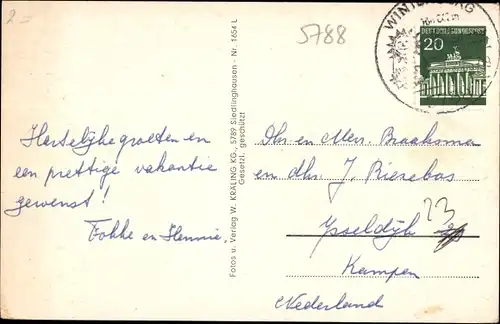 2.-
5788
WINTERBERG
DEUTSCHE BUNDESPOST
20
Hartelijke groeten en
een prettige vakantie
gewenst!
Fokke en Hennie.
Fotos u. Verlag W. KRÄLING KG., 5789 Siedlinghausen - Nr. 1654 L
Gesetzl. geschützt
Dhr en Mevr. Braaksma
en dhr. J. Riesebos
Ysseldijk
23
Kampen
Nederland